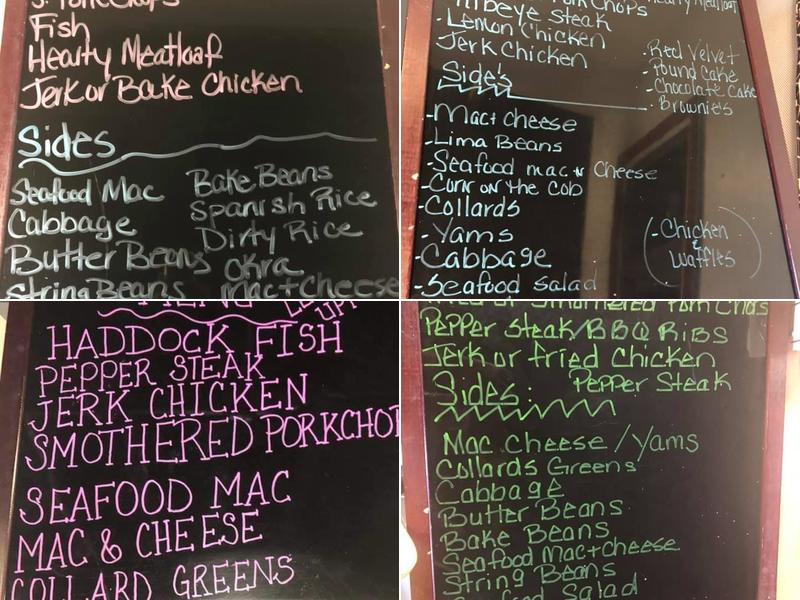 Fish
Hearty Meatloaf
Jerk or Bake Chicken
Sides
Seafood Mac
Cabbage
Butter Beans
String Beans
Bake Beans
Spanish Rice
Dirty Rice
Okra
Mac+Cheese
Ribeye Steak
- Lemon Chicken
Jerk Chicken
Side's
- Mac+ Cheese
- Lima Beans
- Seafood mac + Cheese
- Corn on the Cob
- Collards
- Yams
- Cabbage
- Seafood Salad
· Red Velvet
- Pound Cake
- Chocolate Cake
· Brownie's
- Chicken
&
Waffles
HADDOCK FISH
PEPPER STEAK
JERK CHICKEN
SMOTHERED PORKCHO
SEAFOOD MAC
MAC & CHEESE
COLLARD GREENS
or Smothered Pork Chops
Pepper Steak/BBQ Ribs
Jerk or fried Chicken
Sides: Pepper Steak
Mac Cheese / Yams
Collards Greens
Cabbage
Butter Beans
Bake Beans
Seafood Mac+cheese
String Beans
Seafood Salad